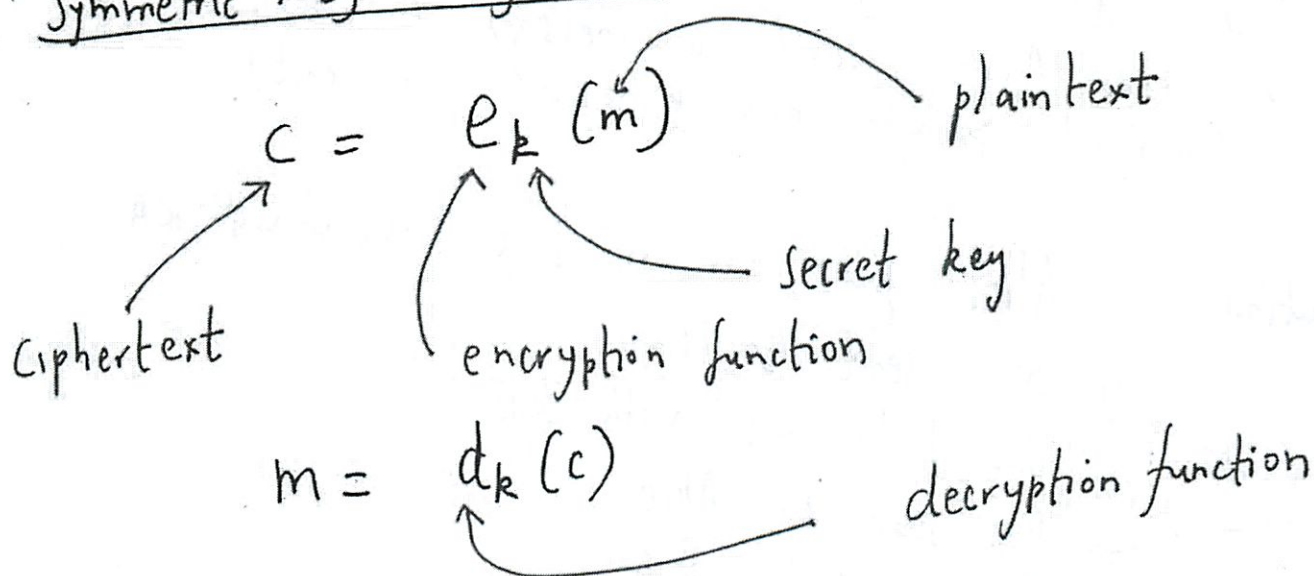 Symmetric
plaintext
c = e_k (m)
secret key
ciphertext
encryption function
m = d_k (c)
decryption function